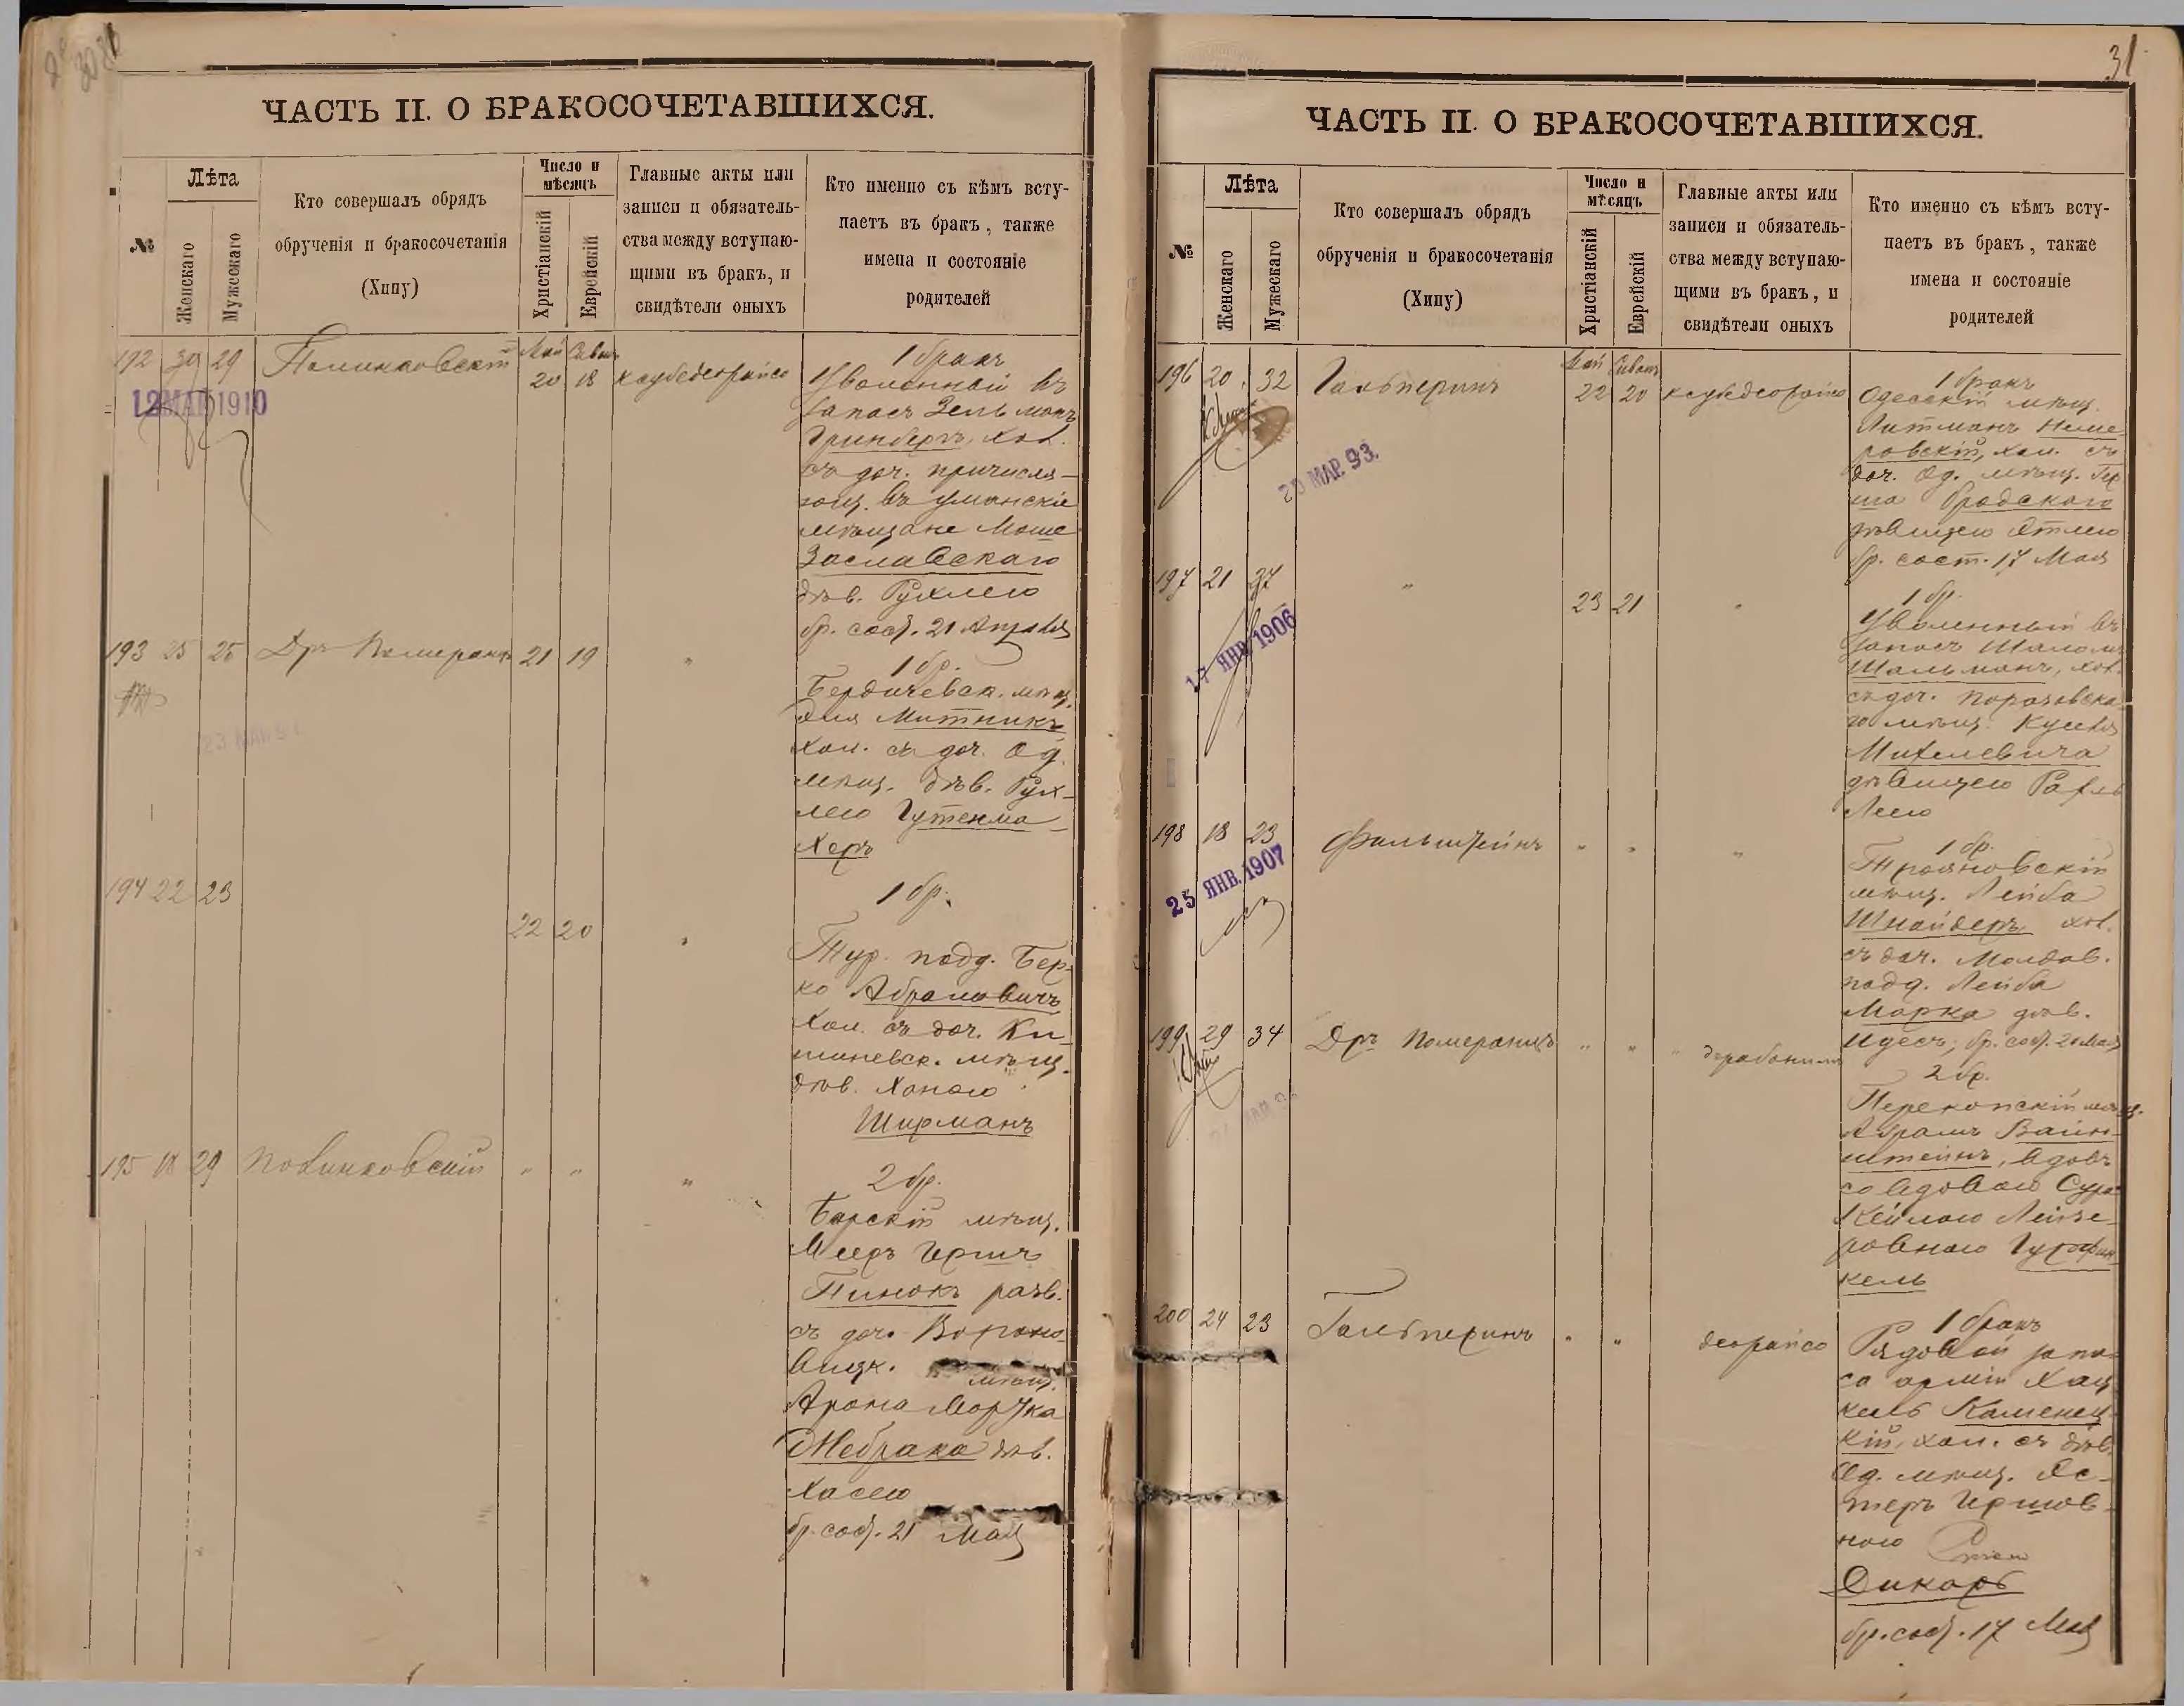 ЧАСТЬ II. О БРАКОСОЧЕТАВШИХСЯ.
№
Лѣта
Женскаго
Мужескаго
Кто совершалъ обрядъ
обрученія и бракосочетанія
(Хипу)
Число и
мѣсяцъ
Христіанскій
Еврейскій
Главные акты или
записи и обязатель-
ства между вступаю-
щими въ бракъ, и
свидѣтели оныхъ
Кто именно съ кѣмъ всту-
паетъ въ бракъ, также
имена и состояніе
родителей
192 29
Май Сиванъ
20 18
1 бракъ
Уволенный въ
запасъ Зельманъ
Гринбергъ, хол.
съ доч. причисля-
ющ. въ уманскіе
мѣщане Моше
Заславскаго
дѣв. Рухлею
бр. сост. 21 Апрѣля
12 МАЯ 1910
193 25 25 Дръ Померанцъ 21 19 "
1 бр.
Бердичевск. мѣщ.
Митникъ
хол. съ доч. Од.
мѣщ. дѣв. Рух-
лею Гутенма-
херъ
194 22 23
22 20 "
1 бр.
Тур. подд. Бер-
ко Абрамовичъ
хол. съ доч. Ки-
шиневск. мѣщ.
дѣв. Ханою
Ширманъ
195 18 29 " " "
2 бр.
Барскій мѣщ.
Мееръ Гершъ
Пинокъ разв.
съ доч.
мѣщ.
Арона Мортка
Жебрака дѣв.
Хасею
бр. сост. 21 Мая
31
ЧАСТЬ II. О БРАКОСОЧЕТАВШИХСЯ.
№
Лѣта
Женскаго
Мужескаго
Кто совершалъ обрядъ
обрученія и бракосочетанія
(Хипу)
Число и
мѣсяцъ
Христіанскій
Еврейскій
Главные акты или
записи и обязатель-
ства между вступаю-
щими въ бракъ, и
свидѣтели оныхъ
Кто именно съ кѣмъ всту-
паетъ въ бракъ, также
имена и состояніе
родителей
196 20 32 Гальперинъ
Май Сиванъ
22 20
1 бракъ
Одесскій мѣщ.
Литманъ Неме-
ровскій, хол. съ
доч. Од. мѣщ. Гер-
ша Бродскаго
дѣвицею Этлею
бр. сост. 17 Мая
20 МАР. 93.
197 21 " 23 21 "
1 бр.
Уволенный въ
запасъ Шаломъ
Шальманъ, хол.
съ доч.
го мѣщ.
Михелевича
дѣвицею Рахль
Леею
17 ЯНВ 1906
198 18 23 Фальштейнъ " " "
1 бр.
Трояновскій
мѣщ. Лейба
Шнайдеръ хол.
съ доч. Молдав.
подд. Лейба
Марка дѣв.
Идесъ, бр. сост. 20 Мая
25 ЯНВ. 1907
199 29 34 Дръ Померанцъ " " "
дерабонимъ
2 бр.
Перекопскій мѣщ.
Абрамъ Вайн-
штейнъ, вдовъ
со вдовою Сура
Кейлою Лейзе-
ровною Гурфин-
кель
200 24 23 Гальперинъ " " деорайсо
1 бракъ
Рядовой запа-
са арміи Хац-
кель Каменец-
кій, хол. съ дѣв.
Од. мѣщ. Эс-
теръ Гершов-
ною
Дикарь
бр. сост. 17 Мая